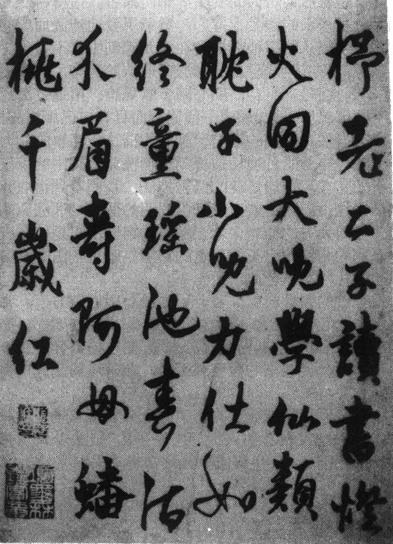 老二子讀書燈
火同大兒學仙類
耽子小兒力仕如
終童瑤池春酒
介眉壽阿母蟠
桃千歲紅